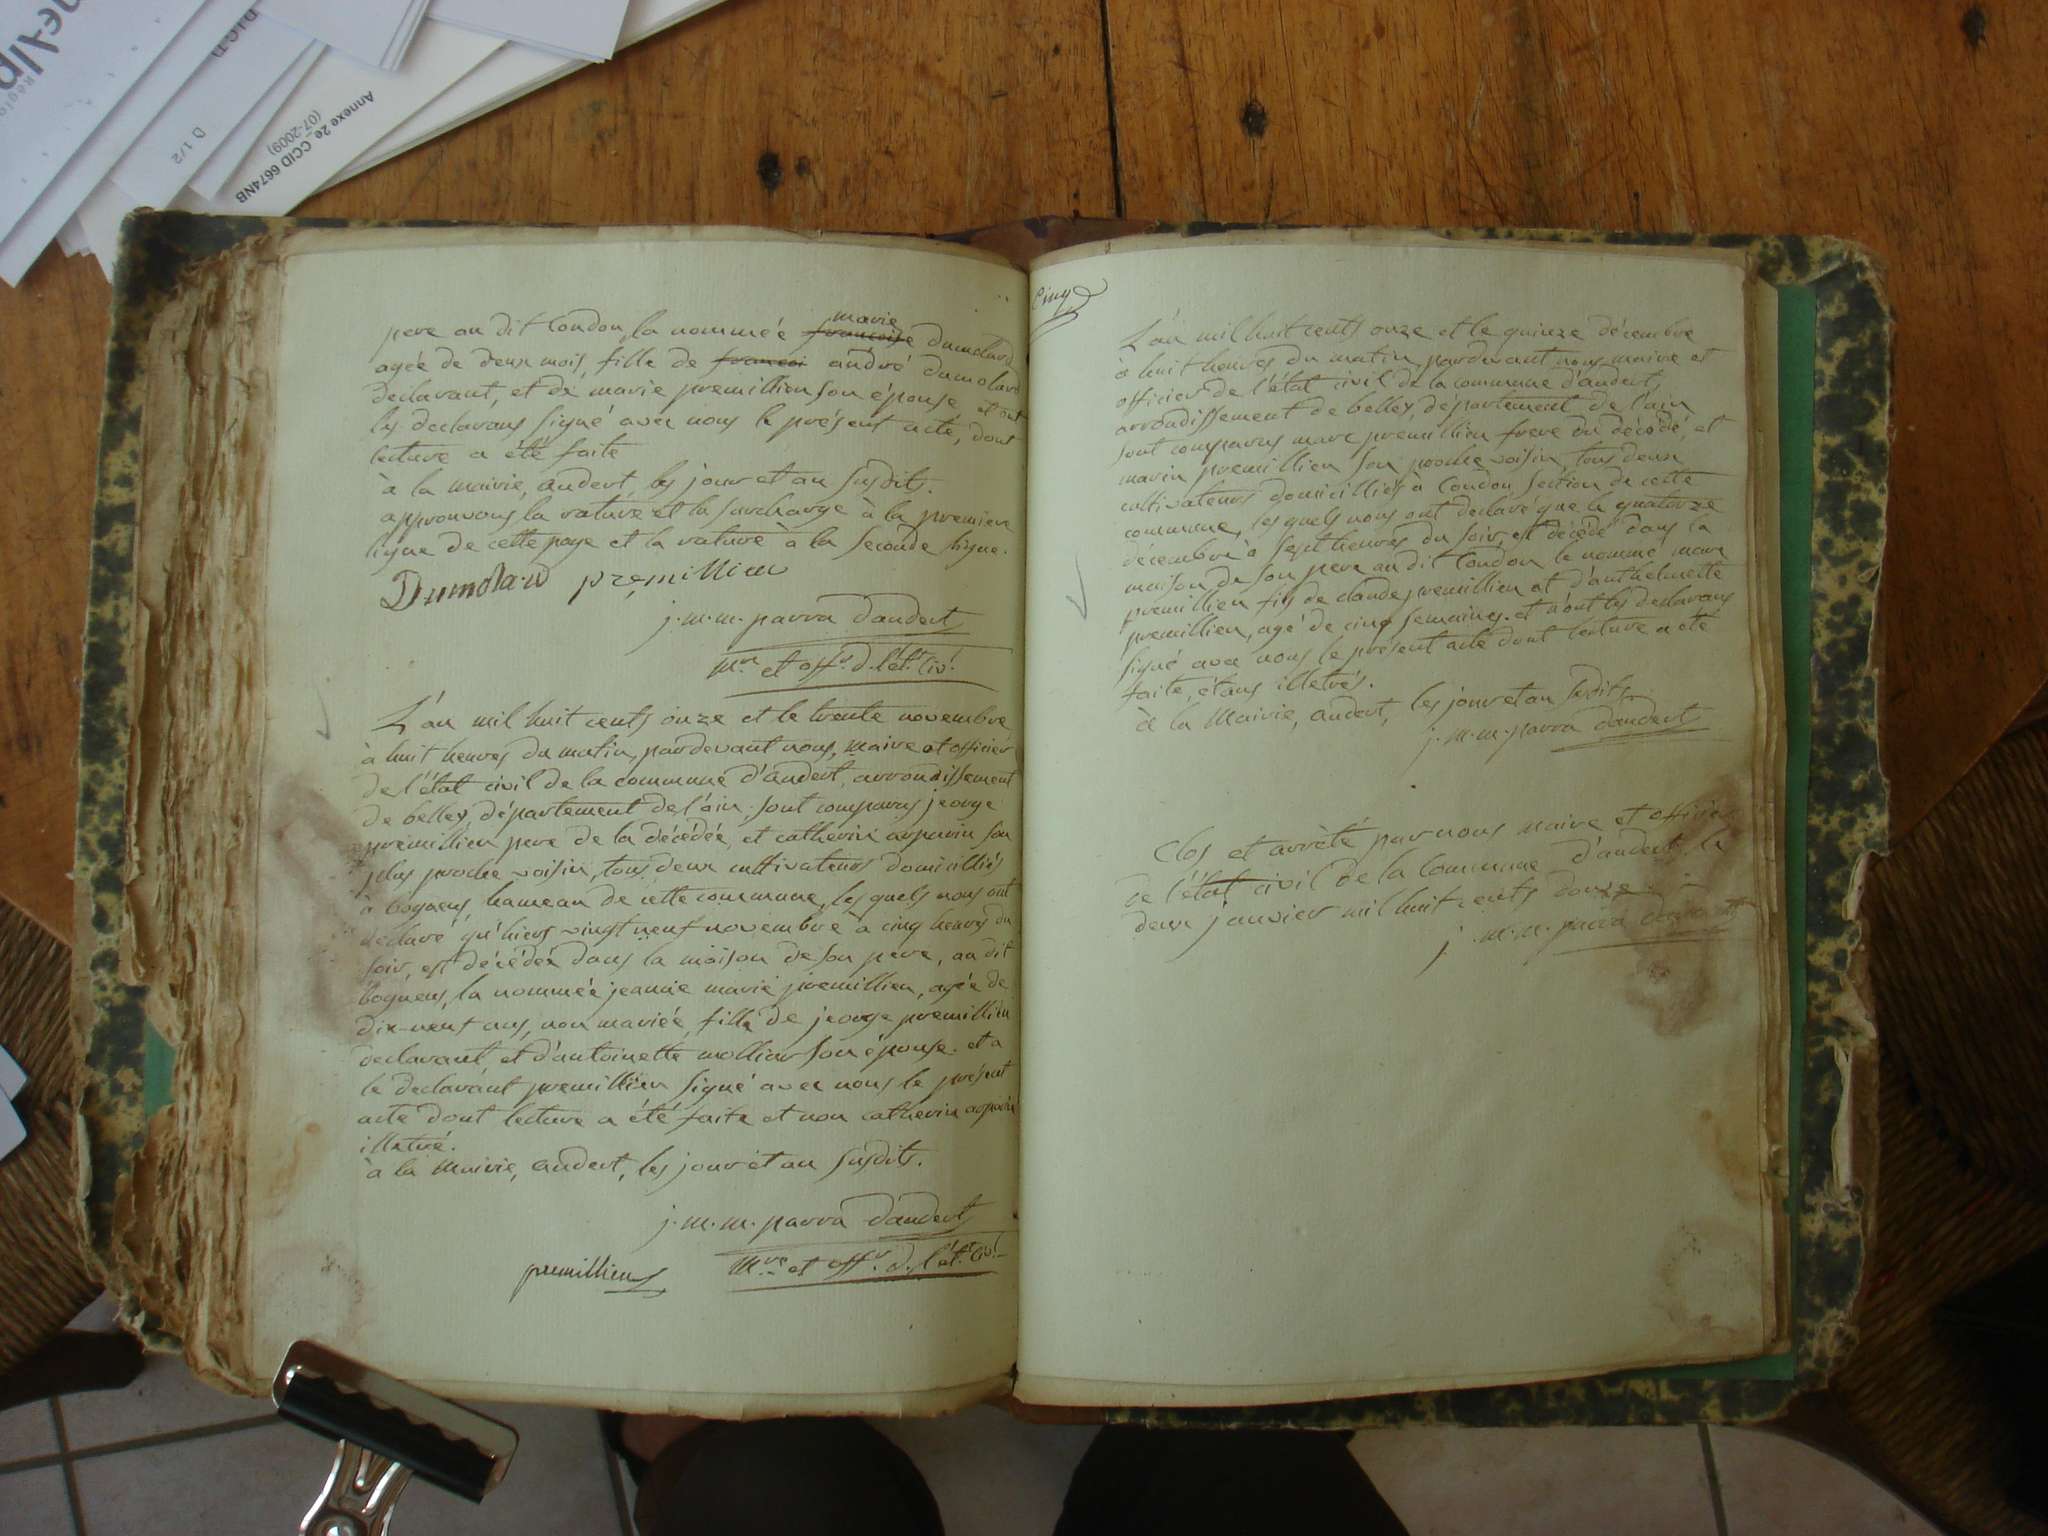 ne-Alp
Région
D.I.C.T)
D 1/2
Annexe 2e CCID 6674NB
(07-2009)
pere au dit Condon, la nommée francoise marie dumolard
agée de deux mois, fille de francoi andré dumolard
declarant, et de marie premillien son épouse et ont
les declarans signé avec nous le présent acte, dont
lecture a été faite
à la mairie, andert, les jour et an susdits.
approuvons la rature et la surcharge à la premiere
ligne de cette page et la rature à la seconde ligne.
Dumolard premillieu
j. m. m. parra dandert
mre et offr. d. l'ét. civ.l
L'an mil huit cents onze et le trente novembre
à huit heures du matin, pardevant nous, maire et officier
de l'état civil de la commune d'andert, arrondissement
de belley, département de l'ain, sont comparus jeorge
premillien pere de la décédée, et catherin arparin son
plus proche voisin, tous deux cultivateurs domiciliés
à bognens hameau de cette commune, les quels nous ont
declaré qu'hiers vingt neuf novembre à cinq heures du
soir, est décédée dans la maison de son pere, au dit
bognens, la nommée jeanne marie premillien, agée de
dix-neuf ans, non mariée, fille de jeorge premillien
declarant et d'antoinette molliar son épouse. et a
le declarant premillien signé avec nous le présent
acte dont lecture a été faite et non catherin arparin
illetré.
à la mairie, andert, les jour et an susdits.
j. m. m. parra dandert
mre et offr. d. l'ét. civ.l
premillien
Cinq
L'an mil huit cents onze et le quinze décembre
à huit heures du matin pardevant nous maire et
officier de l'état civil de la commune d'andert,
arrondissement de belley, département de l'ain
sont comparus marc premillien frere du décédé, et
marin premillien son proche voisin, tous deux
cultivateurs domiciliés à Condon section de cette
commune, les quels nous ont declaré que le quatorze
décembre à sept heures du soir, est décédé dans la
maison de son pere au dit Condon le nommé marc
premillien fils de claude premillien et d'anthelmette
premillien, agé de cinq semaines. et n'ont les declarans
signé avec nous le présent acte dont lecture a été
faite, étans illetrés.
à la Mairie, andert, les jour et an susdits.
j. m. m. parra dandert
Clos et arrêté par nous maire et officier
de l'état civil de la Commune d'andert le
deux janvier mil huit cents douze.
j. m. m. parra dandert